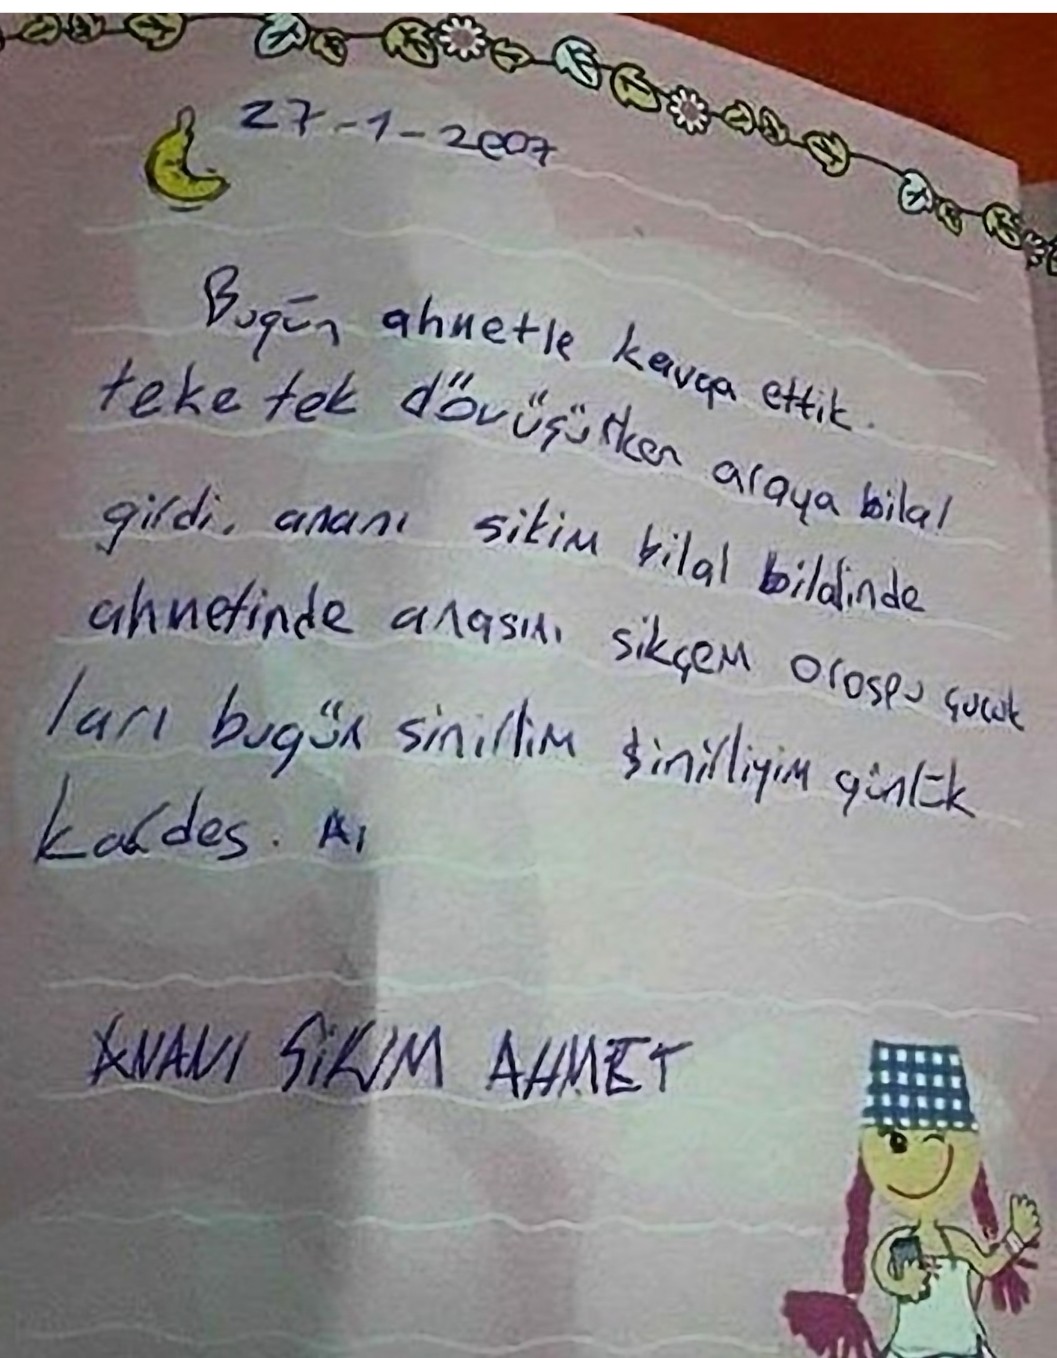 27-1-2007
Bugün ahmetle kavga ettik.
teke tek dövüşürken araya bilal
girdi. ananı sikim bilal bilalinde
ahmetinde anasını sikçem orospu çucuk
ları bugün sinirlim sinirliyim günlük
kardeş. Aı
ANANI SİKİM AHMET